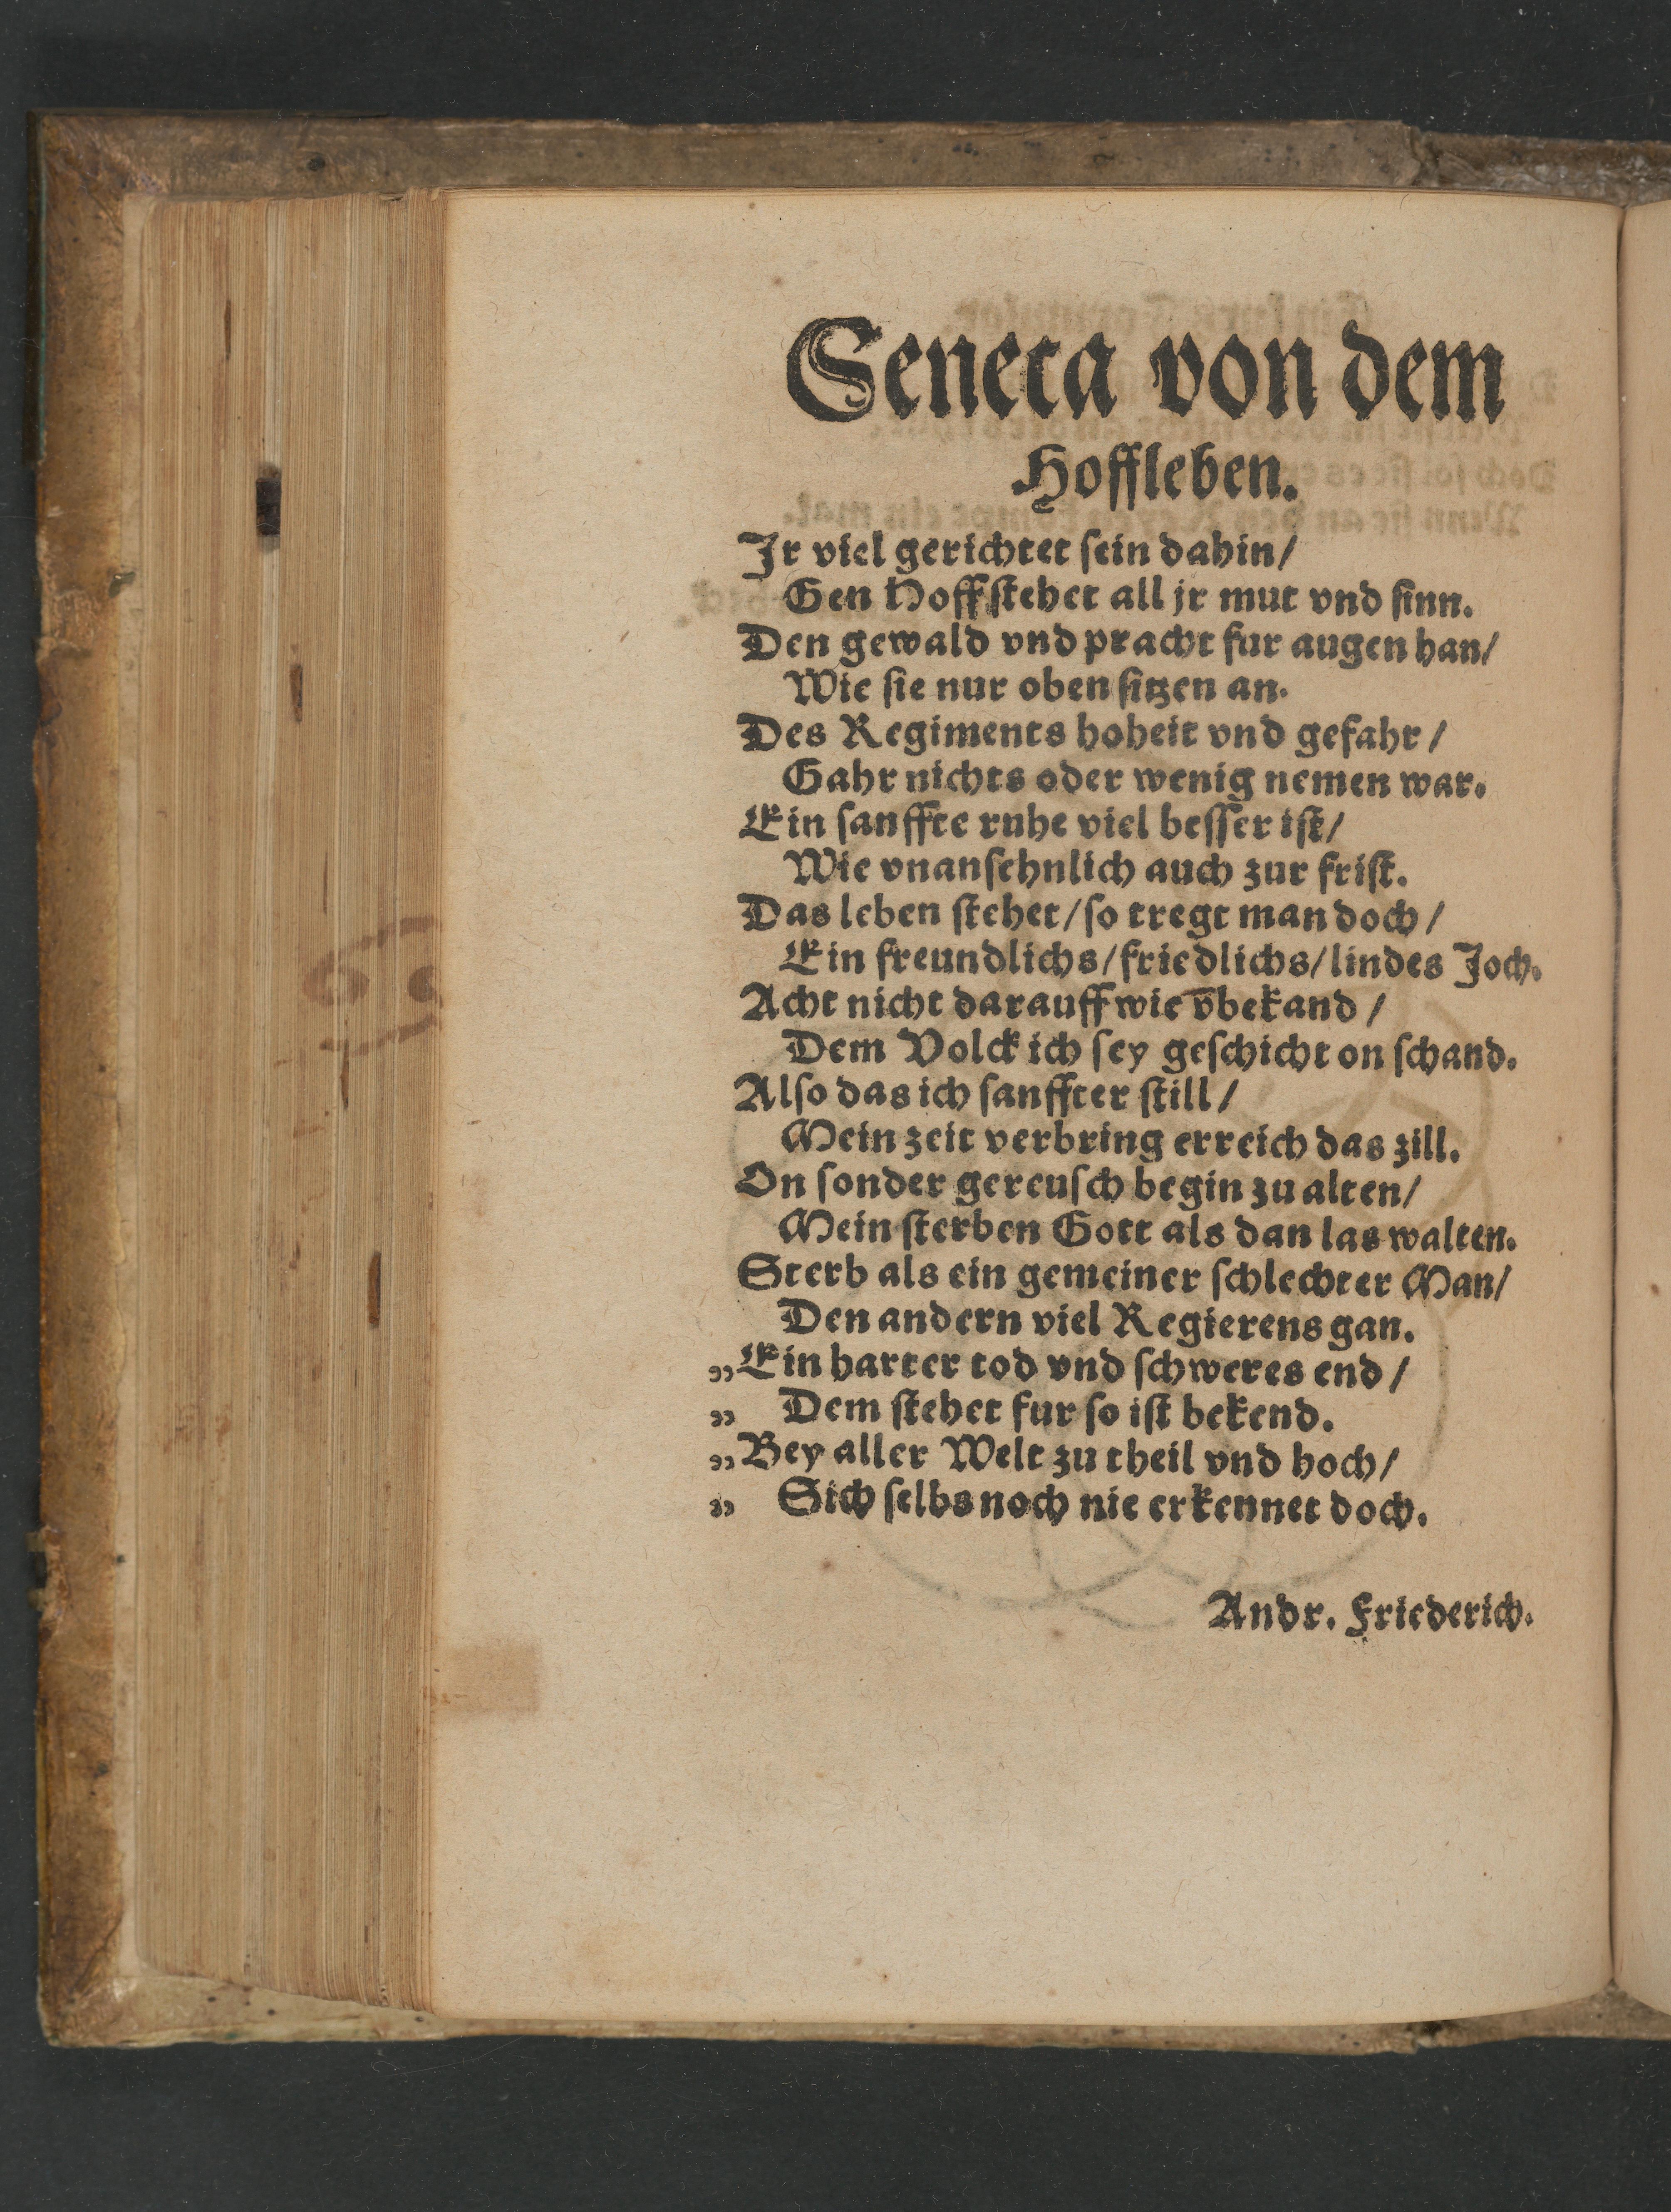 Seneca von dem
Hoffleben.
Jr viel gerichtet ſein dahin/
Gen Hoff ſtehet all jr mut vnd ſinn.
Den gewald vnd pracht fur augen han/
Wie ſie nur oben ſitzen an.
Des Regiments hoheit vnd gefahr/
Gahr nichts oder wenig nemen war.
Ein ſanffte ruhe viel beſſer iſt/
Wie vnanſehnlich auch zur friſt.
Das leben ſtehet/ſo tregt man doch/
Ein freundlichs/friedlichs/lindes Joch.
Acht nicht darauff wie v̄bekand/
Dem Volck ich ſey geſchicht on ſchand.
Alſo das ich ſanffter ſtill/
Mein zeit verbring erreich das zill.
On ſonder gereuſch begin zu alten/
Mein ſterben Gott als dan las walten.
Sterb als ein gemeiner ſchlechter Man/
Den andern viel Regierens gan.
„Ein harter tod vnd ſchweres end/
„ Dem ſtehet fur ſo iſt bekend.
„Bey aller Welt zu theil vnd hoch/
„ Sich ſelbs noch nie erkennet doch.
Andr. Friederich.